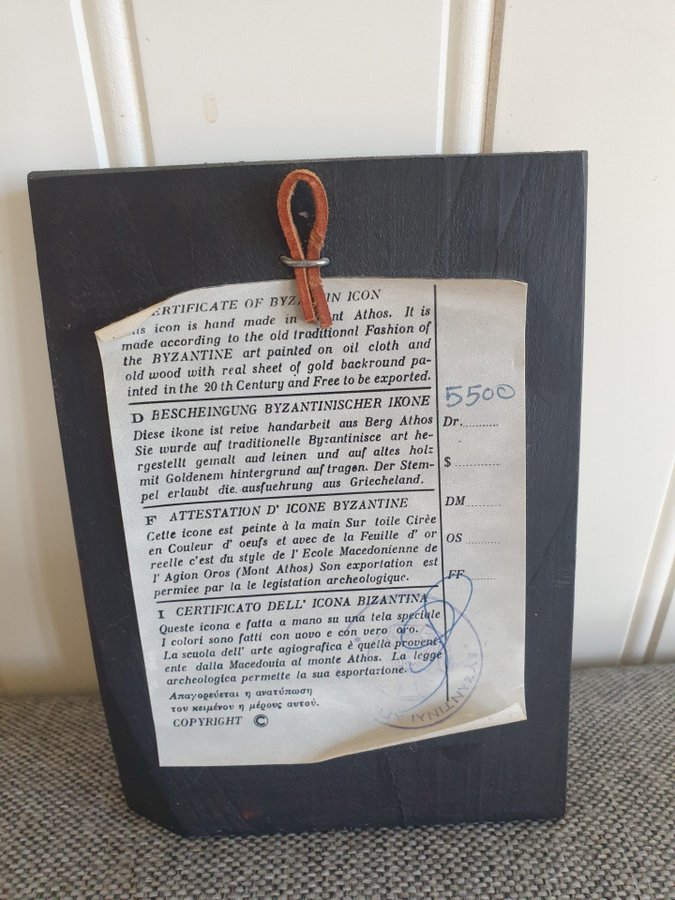 ERTIFICATE OF BYZ IN ICON
icon is hand made in nt Athos. It is
made according to the old traditional Fashion of
the BYZANTINE art painted on oil cloth and
old wood with real sheet of gold backround pa-
inted in the 20 th Century and Free to be exported.
D BESCHEINGUNG BYZANTINISCHER IKONE
Diese ikone ist reive handarbeit aus Berg Athos
Sie wurde auf traditionelle Byzantinisce art he-
rgestellt gemalt aud leinen und auf altes holz
mit Goldenem hintergrund auf tragen. Der Stem-
pel erlaubt die. ausfuehrung aus Griecheland.
F ATTESTATION D' ICONE BYZANTINE
Cette icone est peinte à la main Sur toile Cirèe
en Couleur d' oeufs et avec de la Feuille d' or
reelle c'est du style de l' Ecole Macedonienne de
l' Agion Oros (Mont Athos) Son exportation est
permiee par la le legistation archeologique.
I CERTIFICATO DELL' ICONA BIZANTINA
Queste icona e fatta a mano su una tela speciale
I colori sono fatti con uovo e con vero oro.
La scuola dell' arte agiografica è quella provent-
ente dalla Macedouia al monte Athos. La legge
archeologica permette la sua esportazione.
Απαγορεύεται η ανατύπωση
του κειμένου η μέρους αυτού.
COPYRIGHT ©
5500
Dr..........
$ ............
DM ..........
OS ..........
FF ..........
BYZANTINAI